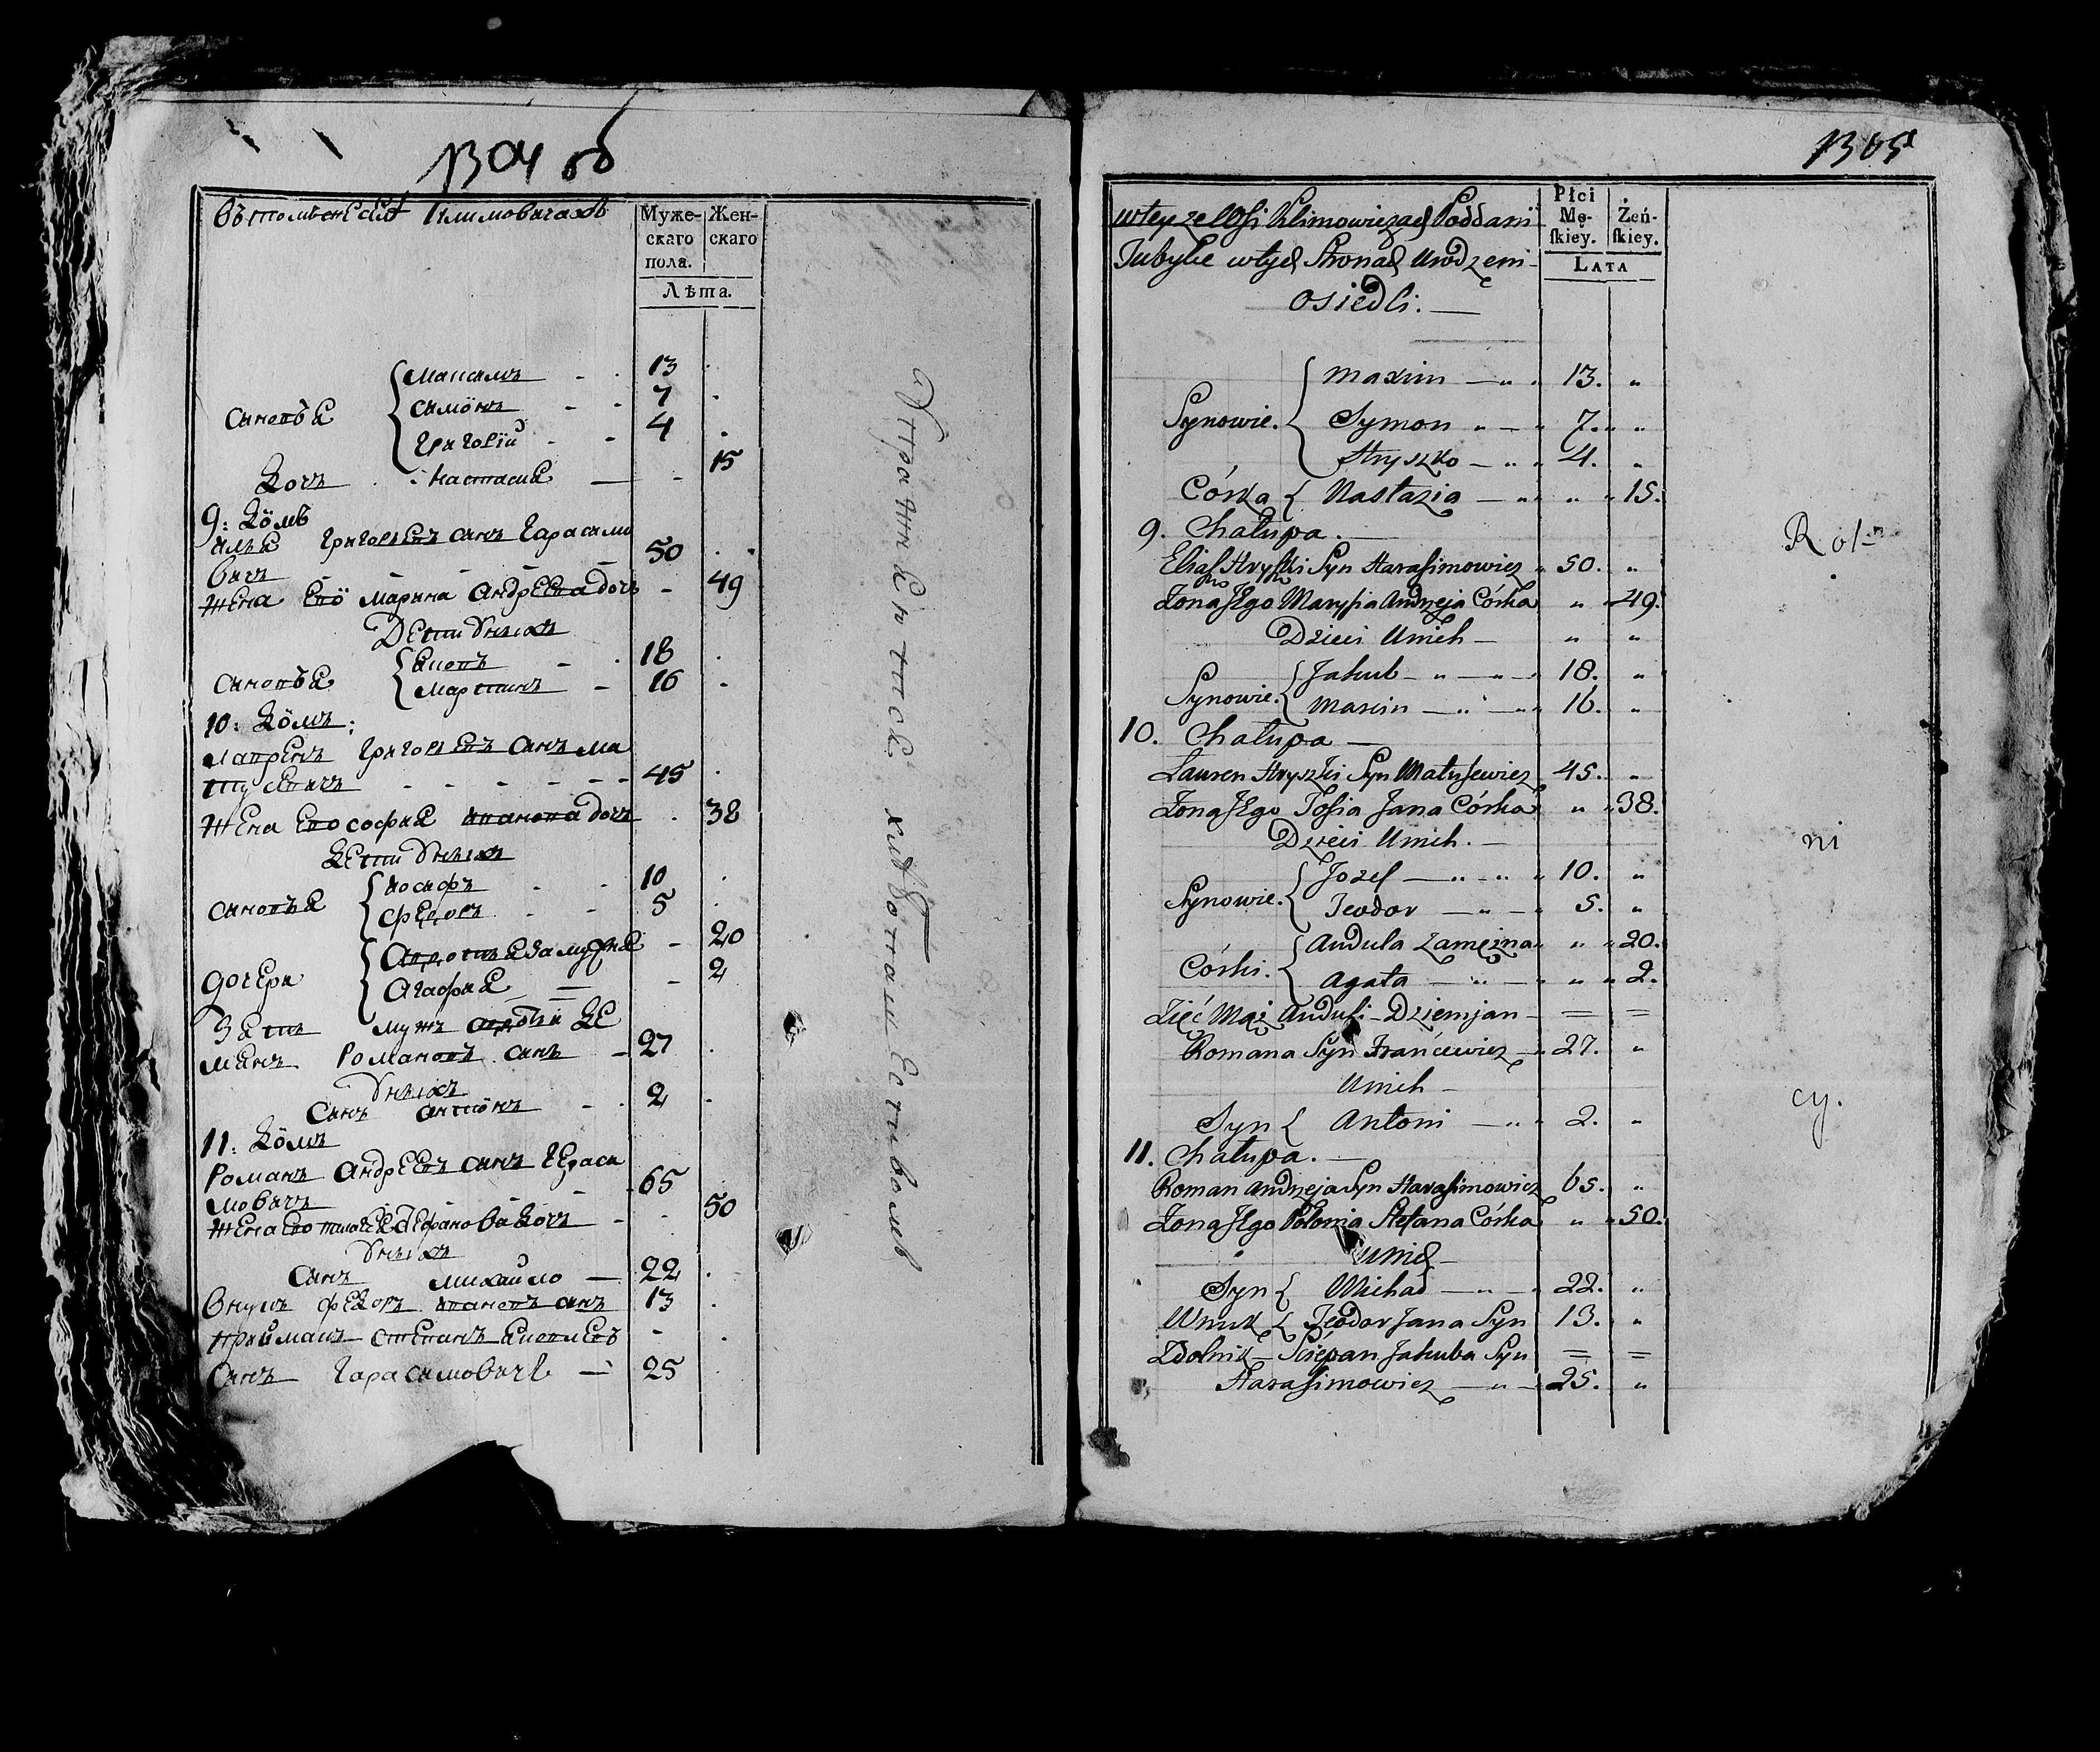 1304 об
въ томъже селѣ Климовичахъ
Муже-
скаго
пола.
Жен-
скаго
Лѣта.
Максимъ 13
сыновья
Симонъ 7
Григорій 4
Дочь Настасия 15
9: Домъ
Илья Григорьевъ сынъ Гарасимо
вичъ 50
Жена Ево Марина Андреева дочь 49
Дети У нихъ
Яковъ 18
сыновья
Мартинъ 16
10: Домъ:
Лавренъ Григорьевъ сынъ Ма
тусевичъ 45
Жена Ево София Иванова дочь 38
Дети У нихъ
Иосифъ 10
сыновья
Федоръ 5
замужня 20
дочери
Агафия 2
Зять мужъ Де
мянъ Романовъ сынъ 27
У нихъ
Сынъ Антонъ 2
11: Домъ
Романъ Андреевъ сынъ Гераси
мовичъ 65
Жена Ево Стефанова Дочь 50
У нихъ
Сынъ Михайло 22
Внукъ Федоръ Ивановъ сынъ 13
Приймакъ Степанъ Яковлевъ
Сынъ Гарасимовичь 25
хлебопашествомъ
1305
w teyze Wsi Klimowiczach Poddani
Tubylce w tych Stronach Urodzeni
osiedli.
Płci
Mę-
skiey.
Żeń-
skiey.
LATA
Maxim — „ 13. „
Synowie. Symon „ — „ 7. „
Hryszko — „ 4. „
Córka Nastazia — „ „ 15.
9. Chałupa. —
Eliasz Hryszki Syn Harasimowicz „ 50. „
Żona Jego Marysia Andrzeja Córka „ 49.
Dzieci U nich — „ „
Jakub — „ — „ 18. „
Synowie.
Marcin — „ — „ 16. „
10. Chałupa —
Lauren Hryszki Syn Matusewicz 45. „
Żona Jego Zosia Jana Córka „ 38.
Dzieci U nich. —
Jozef — „ — „ 10. „
Synowie.
Teodor — „ — 5. „
Andula zamężna „ „ 20.
Córki.
Agata — „ — „ „ 2.
Zięć Mąż Anduli — Dziemjan — = =
Romana Syn Iwańcewicz — „ 27. „
U nich —
Syn Antoni — „ 2. „
11. Chałupa. —
Roman Andrzeja Syn Harasimowicz 65. „
Żona Jego Polonia Stefana Córka „ 50.
U nich —
Syn Michał — „ — 22. „
Wnuk Teodor Jana Syn 13. „
Zdolnik — Sciepan Jakuba Syn = =
Harasimowicz — „ — 25. „
Rol-
ni
cy.